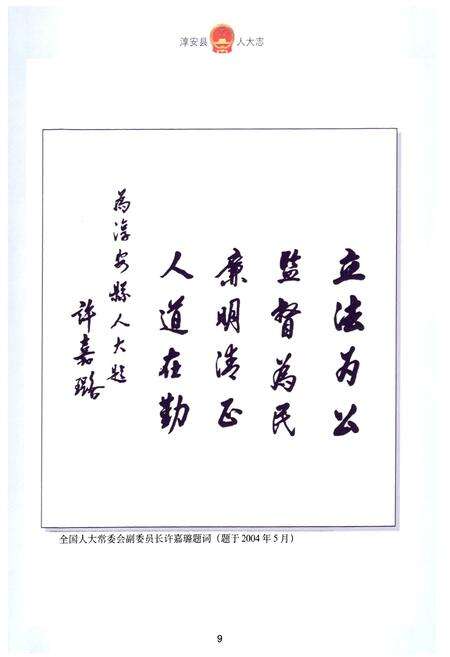 淳安县 人大志
立法为公
监督為民
廉明清正
人道在勤
為淳安縣人大题
许嘉璐
全国人大常委会副委员长许嘉璐题词（题于2004年5月）
9